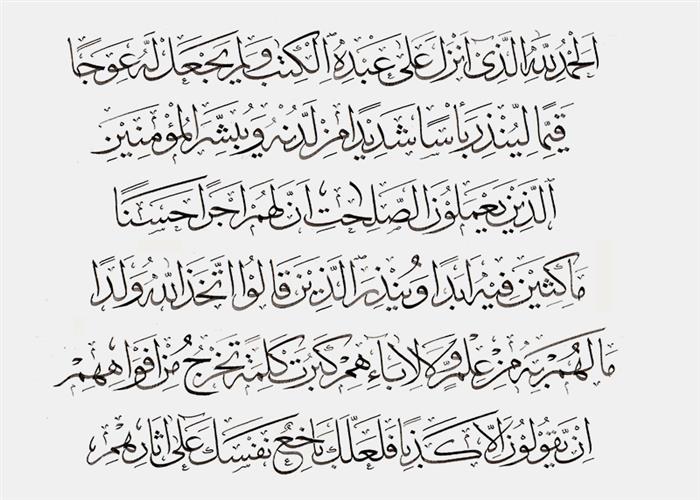 الحمد لله الذي انزل على عبده الكتب ولم يجعل له عوجا
قيما لينذر بأسا شديدا من لدنه ويبشر المؤمنين
الذين يعملون الصلحت ان لهم اجرا حسنا
ماكثين فيه ابدا وينذر الذين قالوا اتخذ الله ولدا
ما لهم به من علم ولا لاباءهم كبرت كلمة تخرج من افواههم
ان يقولون الا كذبا فلعلك باخع نفسك على اثارهم